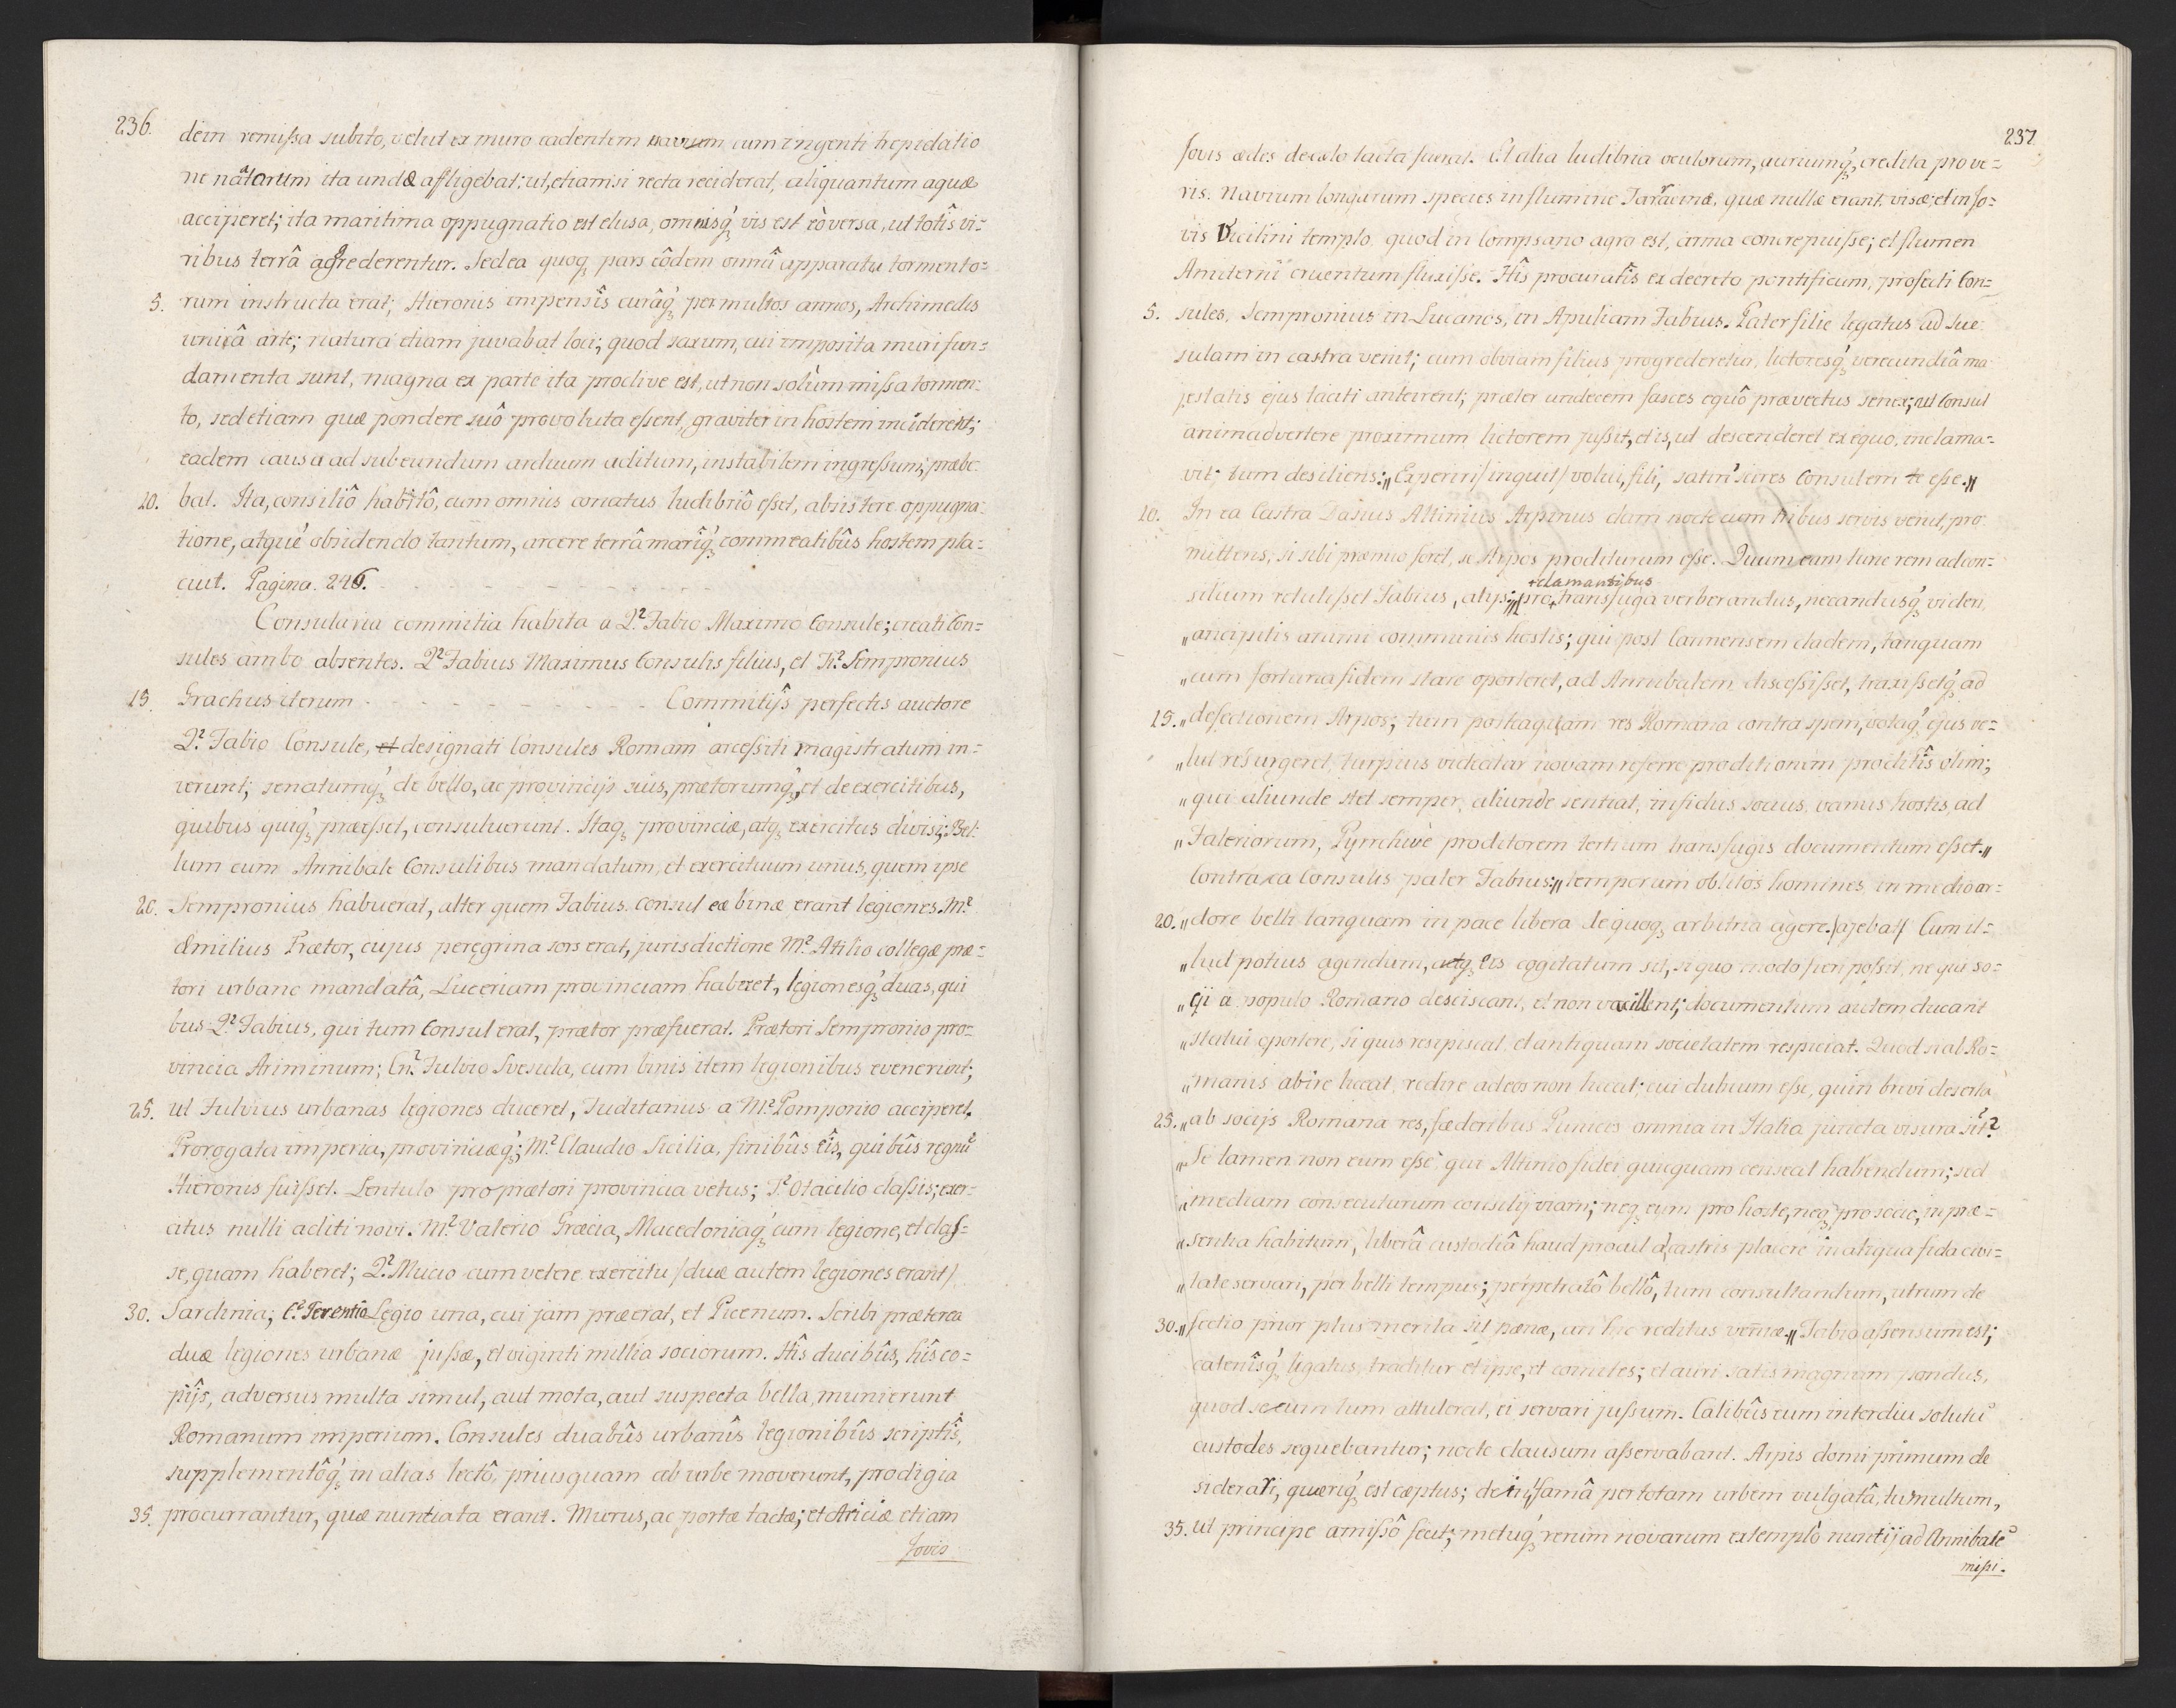 236.
dein remissa subito, velut ex muro cadentem navem cum ingenti trepidatio
ne nâtarum ita undæ affligebat; ut, etiamsi recta reciderat, aliquantum aquæ
acciperet; ita maritima oppugnatio est elusa, omnisq́ꝫ vis est eò versa, ut totîs vi=
ribus terrâ aggrederentur. Sed ea quoqꝫ pars eôdem omnî apparatu tormento=
5. rum instructa erat; Hieronis impensîs curâq́ꝫ per multos annos, Archimedis
unicâ arte; natura etiam juvabat loci; quod saxum, cui imposita muri fun=
damenta sunt, magna ex parte ita proclive est, ut non solùm missa tormen=
to, sed etiam quæ pondere suô provoluta essent, graviter in hostem inciderent;
eadem causa ad subeundum arduum aditum, instabilem ingressum, præbe
10. bat. Ita, consiliô habitô, cum omnis conatus ludibriô esset, absistere oppugna=
tione, atque obsidendo tantùm, arcere terrâ marîq́ꝫ commeatibûs hostem pla=
cuit. Pagina. 246. - - - - - - - -
Consularia commitia habita a Q.º Fabio Maximo Consule; creati Con=
sules ambo absentes. Qº Fabius Maximus Consulis filius, et Ti.º Sempronius
15. Grachus iterum - - - - - - - - - - Commitijs perfectis auctore
Q.º Fabio Consule, et designati Consules Romam arcessiti magistratum in=
ierunt; senatumq́ꝫ de bello, ac provincijs suis, prætorumq́ꝫ, et de exercitibus,
quibus quiq́ꝫ præesset, consuluerunt. Itaqꝫ provinciæ, atqꝫ exercitus divisi; Bel=
lum cum Annibale Consulibus mandatum, et exercituum unus, quem ipse
20. Sempronius habuerat, alter quem Fabius Consul eæ binæ erant legiones. M.º
Æmilius Prætor, cujus peregrina sors erat, jurisdictione M.º Atilio collegæ præ=
tori urbano mandatâ, Luceriam provinciam haberet, legionesq́ꝫ duas, qui
bus Q.º Fabius, qui tum Consul erat, prætor præfuerat. Prætori Sempronio pro=
vincia Ariminum; Cn.º Fulvio Svesula, cum binis item legionibus evenerunt;
25. ut Fulvius urbanas legiones duceret, Tuditanus a M.º Pomponio acciperet.
Prorogata imperia, provinciæq́ꝫ; M.º Claudio Sicilia, finibûs eîs, quibûs regnũ
Hieronis fuisset. Lentulo proprætori provincia vetus; T.º Otacilio classis; exer=
citus nulli aditi novi. M.º Valerio Græcia, Macedoniaq́ꝫ cum legione, et clas=
se, quam haberet; Q.º Mucio cum vetere exercitu /duæ autem legiones erant/
30. Sardinia; C.º Terentio Legio una, cui jam præerat, et Picenum. Scribi præterea
duæ legiones urbanæ jussæ, et viginti millia sociorum. Hîs ducibûs, hîs co=
pijs, adversus multa simul, aut mota, aut suspecta bella, munierunt
Romanum imperium. Consules duabûs urbanîs legionibûs scriptîs,
supplementôq́ꝫ in alias lectô, priusquam ab urbe moverunt, prodigia
35. procurrantur, quæ nuntiata erant. Murus, ac portæ tactæ; et Ariciæ etiam
Jovis
237
Jovis ædes de cælo tacta fuerat. Et alia ludibria oculorum, auriumq́ꝫ, credita pro ve=
ris. Navium longarum species in flumine Tarracinæ, quæ nullæ erant, visæ; et in Jo=
vis Vicilini templo, quod in Compsano agro est, arma concrepuisse; et flumen
Amiterni cruentum fluxisse. Hîs procuratîs ex decreto pontificum, profecti Con=
5. sules, Sempronius in Lucanos, in Apuliam Fabius. Pater filio legatus ad Sue
sulam in castra venit; cum obviam filius progrederetur, lictoresq́ꝫ verecundiâ ma
jestatis ejus taciti anteirent; præter undecem fasces equô prævectus senex; ut Consul
animadvertere proximum lictorem jussit, et is, ut descenderet ex equo, inclama=
vit; tum desiliens: „Experiri /inquit/ volui, fili, satin' scires Consulem te esse.„
10. In ea Castra Dasius Altinius Arpinus clam nocte cum tribus servis venit, pro
mittens, si sibi præmio foret, se Arpos proditurum esse. Quum eam hunc rem ad con=
silium retulisset Fabius, alijs +clamantibus „pro+ transfuga verberandus, necandusq́ꝫ viden,
„ancipitis animi communis hostis; qui post Cannensem cladem, tanquam
„cum fortuna fidem stare oporteret, ad Annibalem discessisset, traxissetq́ꝫ ad
15. „defectionem Arpos; tum posteaquam res Romana contra spem, votaq́ꝫ ejus ve=
„lut resurgeret, turpius videatur novam referre proditionem proditîs olim;
„qui aliunde stet semper, aliunde sentiat, infidus socius, vanus hostis, ad
„Faleriorum, Pyrrhive proditorem tertium transfugis documentum esset.„
Contra ea Consulis pater Fabius: „temporum oblitos homines in medio ar=
20. „dore belli tanquam in pace libera de quoqꝫ arbitria agere. /ajebat/ Cum il=
„lud potius agendum, atqꝫ eis cogitatum sit, si quo modo fieri possit, ne qui so=
„cji a populo Romano desciscant, et non vacillent; documentum autem dicant
„statui oportere, si quis resipiscat, et antiquam societatem respiciat. Quod si ab Ro=
„manis abire liceat, redire ad eos non liceat; cui dubium esse, quin brevi deserta
25. „ab socijs Romana res, fœderibus Punicis omnia in Italia juncta visura sit?
„Se tamen non eum esse, qui Altinio fidei quicquam censeat habendum; sed
„mediam consecuturum consilij viam; neqꝫ eum pro hoste, neqꝫ pro socio, in præ=
„sentia habitum, liberâ custodiâ haud procul a castris placere in aliqua fida civi=
„tate servari, per belli tempus; perpetratô bellô, tum consultandum, utrum de
30. „fectio prior plus merita sit pœnæ, an hic reditus veniæ.„ Fabio assensum est;
catenîsq́ꝫ ligatus, traditur et ipse, et comites; et auri satis magnum pondus,
quod secum tum attulerat, ei servari jussum. Calibûs eum interdiu solutũ
custodes sequebantur; nocte clausum asservabant. Arpis domi primum de
siderari, quæriq́ꝫ est cæptus; dein, famâ per totam urbem vulgatâ, tumultum,
35. ut principe amissô fecit; metuq́ꝫ rerum novarum extemplò nuntij ad Annibalẽ
missi.